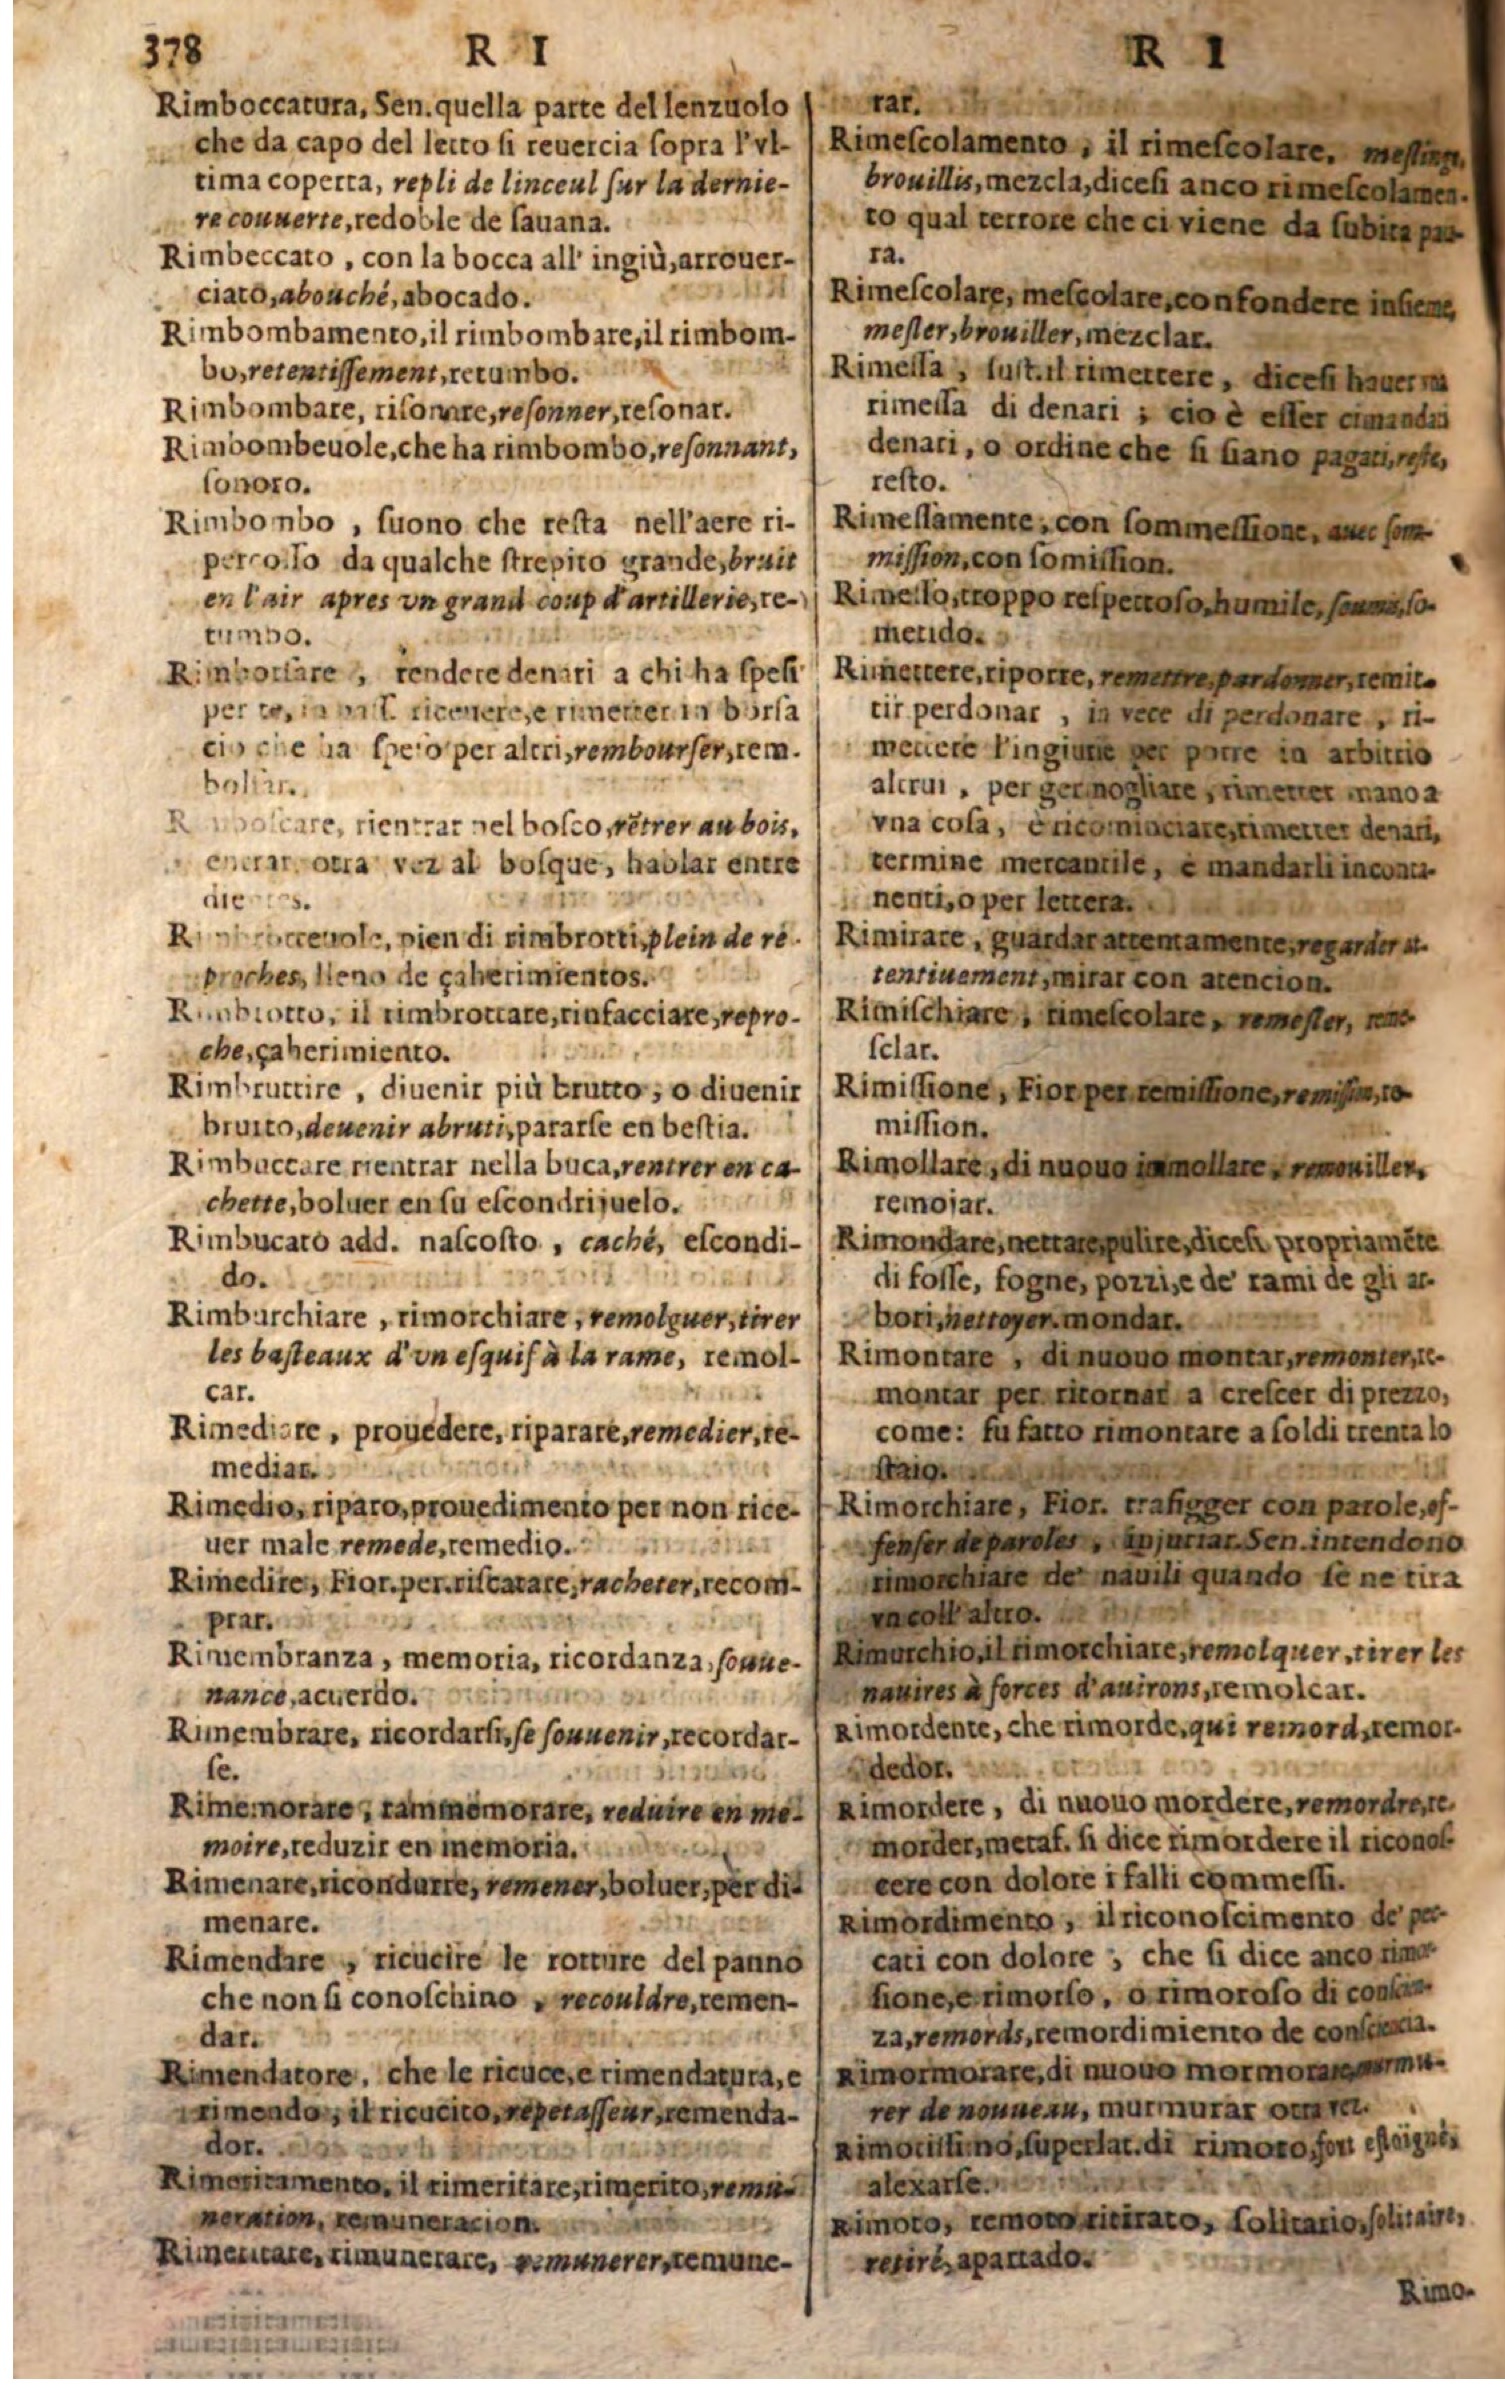 378 R I R I
Rimboccatura, Sen. quella parte del lenzuolo
che da capo del letto ſi reuercia ſopra l'vl-
tima coperta, repli de linceul ſur la dernie-
re couuerte, redoble de ſauana.
Rimbeccato, con la bocca all' ingiù, arrouer-
ciato, abouché, abocado.
Rimbombamento, il rimbombare, il rimbom-
bo, retentiſſement, retumbo.
Rimbombare, riſonare, reſonner, reſonar.
Rimbombeuole, che ha rimbombo, reſonnant,
ſonoro.
Rimbombo, ſuono che reſta nell'aere ri-
percoſſo da qualche ſtrepito grande, bruit
en l'air apres vn grand coup d'artillerie, re-
tumbo.
Rimborſare, rendere denari a chi ha ſpeſi
per te, ricevere, e rimetter in borſa
cio che ha ſpeſo per altri, rembourſer, rem-
bolſar.
Rimboſcare, rientrar nel boſco, rẽtrer au bois,
entrar otra vez al boſque, hablar entre
dientes.
Rimbrotteuole, pien di rimbrotti, plein de re-
proches, lleno de çaherimientos.
Rimbrotto, il rimbrottare, rinfacciare, repro-
che, çaherimiento.
Rimbruttire, diuenir più brutto, o diuenir
bruito, deuenir abruti, pararſe en beſtia.
Rimbuccare rientrar nella buca, rentrer en ca-
chette, boluer en ſu eſcondrijuelo.
Rimbucato add. naſcoſto, caché, eſcondi-
do.
Rimburchiare, rimorchiare, remolguer, tirer
les baſteaux d'vn eſquif à la rame, remol-
car.
Rimediare, prouedere, riparare, remedier, re-
mediar.
Rimedio, riparo, prouedimento per non rice-
uer male remede, remedio.
Rimedire, Fior. per. riſcatare, racheter, recom-
prar.
Rimembranza, memoria, ricordanza, ſouue-
nance, acuerdo.
Rimembrare, ricordarſi, ſe ſouuenir, recordar-
ſe.
Rimemorare, rammemorare, reduire en me-
moire, reduzir en memoria.
Rimenare, ricondurre, remener, boluer, per di-
menare.
Rimendare, ricucire le rotture del panno
che non ſi conoſchino, recouldre, remen-
dar.
Rimendatore, che le ricuce, e rimendatura, e
rimendo, il ricucito, repetaſſeur, remenda-
dor.
Rimeritamento, il rimeritare, rimerito, remu-
neration, remuneracion.
Rimeritare, rimunerare, remunerer, remune-
rar.
Rimeſcolamento, il rimeſcolare,
brouillis, mezcla, diceſi anco rimeſcolamen-
to qual terrore che ci viene da ſubita pau-
ra.
Rimeſcolare, meſcolare, confondere inſieme,
meſler, brouiller, mezclar.
Rimeſſa, ſuſt. il rimettere, diceſi hauer
rimeſſa di denari; cio è eſſer
denari, o ordine che ſi ſiano pagati, reſte,
reſto.
Rimeſſamente, con ſommeſſione, auec ſom-
miſſion, con ſomiſſion.
Rimeſſo, troppo reſpettoſo, humile, ſo-
metido.
Rimettere, riporre, remettre, pardonner, remit-
tir perdonar, in vece di perdonare, ri-
mettere l'ingiurie per porre in arbitrio
altrui, per germogliare, rimetter mano a
vna coſa, è ricominciare, rimetter denari,
termine mercantile, è mandarli incontа-
nenti, o per lettera.
Rimirare, guardar attentamente, regarder at-
tentiuement, mirar con atencion.
Rimiſchiare, rimeſcolare, remeſler,
ſclar.
Rimiſſione, Fior per remiſſione, remiſſion, re-
miſſion.
Rimollare, di nuouo immollare, remouiller,
remojar.
Rimondare, nettare, pulire, diceſi propriamẽte
di foſſe, fogne, pozzi, e de' rami de gli ar-
bori, nettoyer. mondar.
Rimontare, di nuouo montar, remonter, re-
montar per ritornar a creſcer di prezzo,
come: fu fatto rimontare a ſoldi trenta lo
ſtaio.
Rimorchiare, Fior. trafigger con parole, of-
fenſer de paroles, injuriar. Sen. intendono
rimorchiare de' nauili quando ſe ne tira
vn coll' altro.
Rimorchio, il rimorchiare, remolquer, tirer les
nauires à forces d'auirons, remolcar.
Rimordente, che rimorde, qui remord, remor-
dedor.
Rimordere, di nuouo mordere, remordre, re-
morder, metaf. ſi dice rimordere il riconoſ-
cere con dolore i falli commeſſi.
Rimordimento, il riconoſcimento de' pec-
cati con dolore; che ſi dice anco rimor-
ſione, e rimorſo, o rimoroſo di conſcien-
za, remords, remordimiento de conſciencia.
Rimormorare, di nuouo mormorare, murmu-
rer de nouueau, murmurar otra vez.
Rimotiſſimo, ſuperlat. di rimoto, fort eſloigné,
alexarſe.
Rimoto, remoto ritirato, ſolitario, ſolitaire,
retiré, apartado.
Rimo-